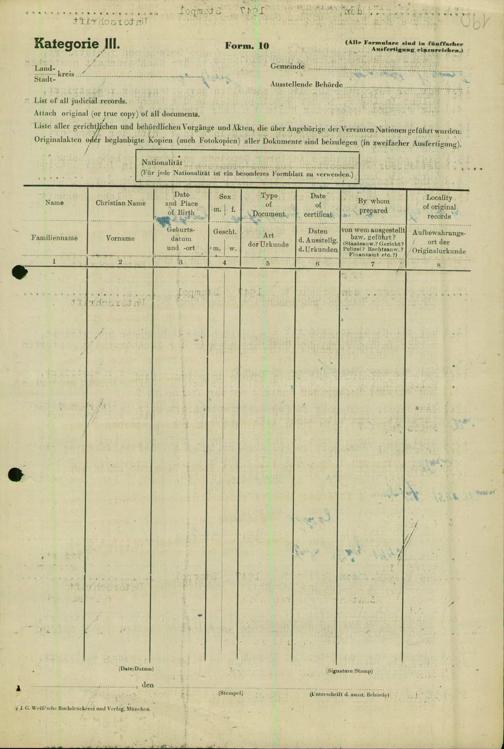 Kategorie III.
Form. 10
(Alle Formulare sind in fünffacher
Ausfertigung einzureichen.)
Land-
Stadt-
kreis
Gemeinde
Ausstellende Behörde
List of all judicial records.
Attach original (or true copy) of all documents.
Liste aller gerichtlichen und behördlichen Vorgänge und Akten, die über Angehörige der Vereinten Nationen geführt wurden.
Originalakten oder beglaubigte Kopien (auch Fotokopien) aller Dokumente sind beizulegen (in zweifacher Ausfertigung).
Nationalität
(Für jede Nationalität ist ein besonderes Formblatt zu verwenden.)
Name
Familienname
1
Christian Name
Vorname
2
Date
and Place
of Birth
Geburts-
datum
und -ort
3
Sex
m. f.
Geschl.
m. w.
4
Type
of
Document
Art
der Urkunde
5
Date
of
certificat.
Daten
d. Ausstellg.
d. Urkunden
6
By whom
prepared
von wem ausgestellt
bzw. geführt?
(Staatsanw.? Gericht?
Polizei? Rechtsanw.?
Finanzamt etc.?)
7
Locality
of original
records
Aufbewahrungs-
ort der
Originalurkunde
8
(Date/Datum)
(Signature/Stamp)
, den
(Stempel)
(Unterschrift d. ausst. Behörde)
J. G. Weiß'sche Buchdruckerei und Verlag, München.